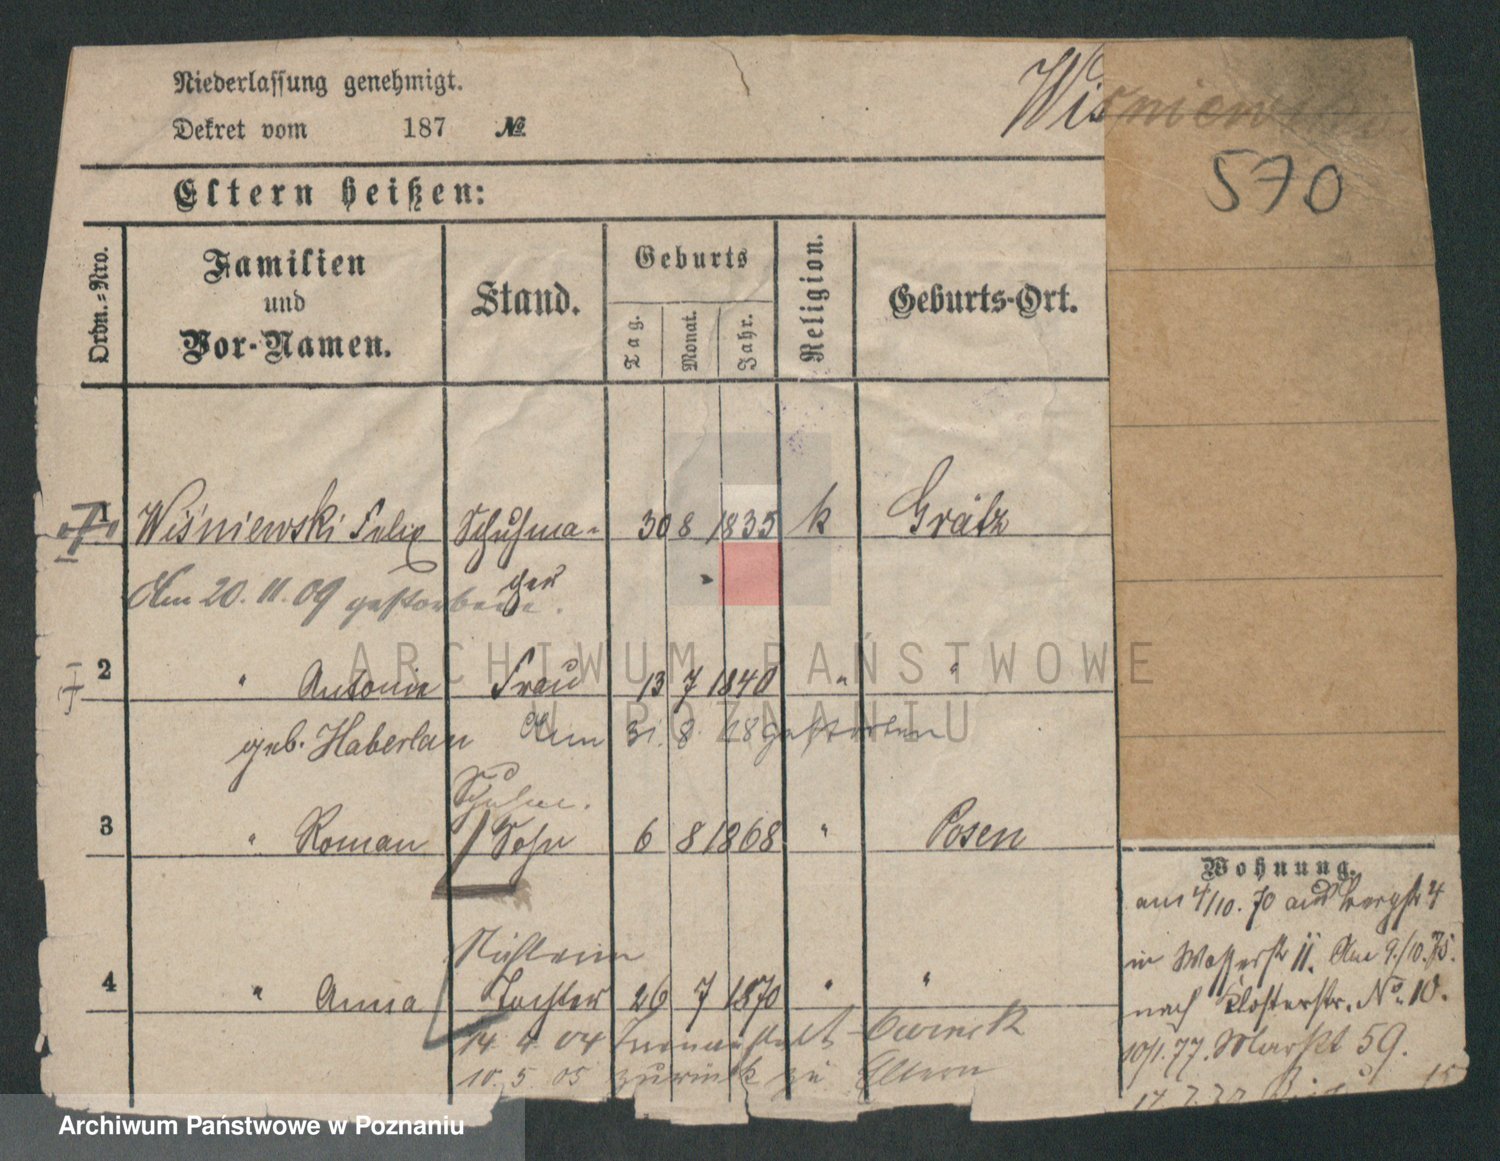 Niederlassung genehmigt.
Dekret vom 187 №
Wiśniewski
570
Eltern heißen:
Ordn.=Nro.
Familien
und
Vor-Namen.
Stand.
Geburts
Tag.
Monat.
Jahr.
Religion.
Geburts-Ort.
1 Wiśniewski Felix Schuhma-
cher 30 8 1835 k Grätz
Am 20. 11. 09 gestorben.
2 " Antonie Frau 13 7 1840 " "
geb. Haberlau Am 31. 8. 18 gestorben
Schuhm.
3 " Roman Sohn 6 8 1868 " Posen
4 " Anna Tochter 26 7 1870 " "
14. 4. 04 Irrenanstalt Owinsk
10. 5. 05 zurück zu Eltern
Wohnung.
am 4/10. 70 aus 4
in Wasserstr 11. Am 9./10. 75.
nach Klosterstr. No. 10.
10/1. 77. Markt 59.
ARCHIWUM PAŃSTWOWE
W POZNANIU
Archiwum Państwowe w Poznaniu